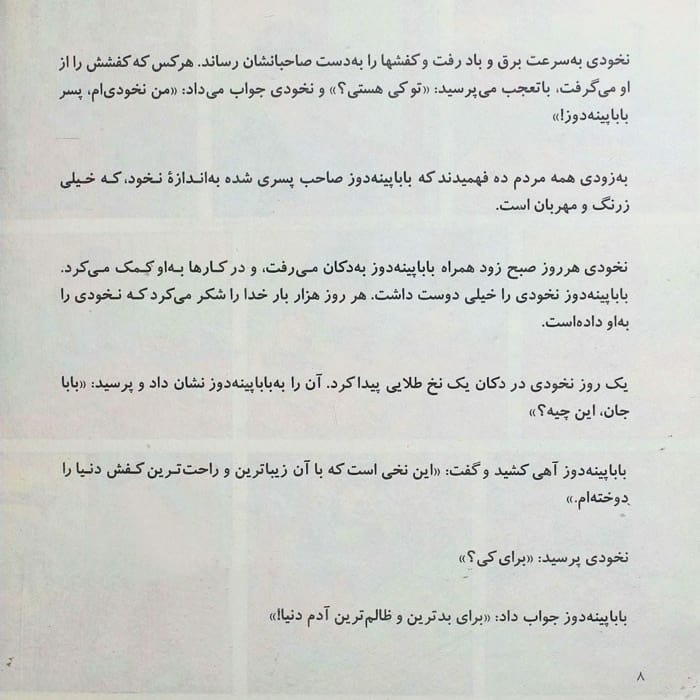 نخودی به‌سرعت برق و باد رفت و کفشها را به‌دست صاحبانشان رساند. هرکس که کفشش را از
او می‌گرفت، باتعجب می‌پرسید: «تو کی هستی؟» و نخودی جواب می‌داد: «من نخودی‌ام، پسر
باباپینه‌دوز!»
به‌زودی همه مردم ده فهمیدند که باباپینه‌دوز صاحب پسری شده به‌اندازهٔ نخود، که خیلی
زرنگ و مهربان است.
نخودی هرروز صبح زود همراه باباپینه‌دوز به‌دکان می‌رفت، و در کارها به‌او کمک می‌کرد.
باباپینه‌دوز نخودی را خیلی دوست داشت. هر روز هزار بار خدا را شکر می‌کرد که نخودی را
به‌او داده‌است.
یک روز نخودی در دکان یک نخ طلایی پیدا کرد. آن را به‌باباپینه‌دوز نشان داد و پرسید: «بابا
جان، این چیه؟»
باباپینه‌دوز آهی کشید و گفت: «این نخی است که با آن زیباترین و راحت‌ترین کفش دنیا را
دوخته‌ام.»
نخودی پرسید: «برای کی؟»
باباپینه‌دوز جواب داد: «برای بدترین و ظالم‌ترین آدم دنیا!»
۸